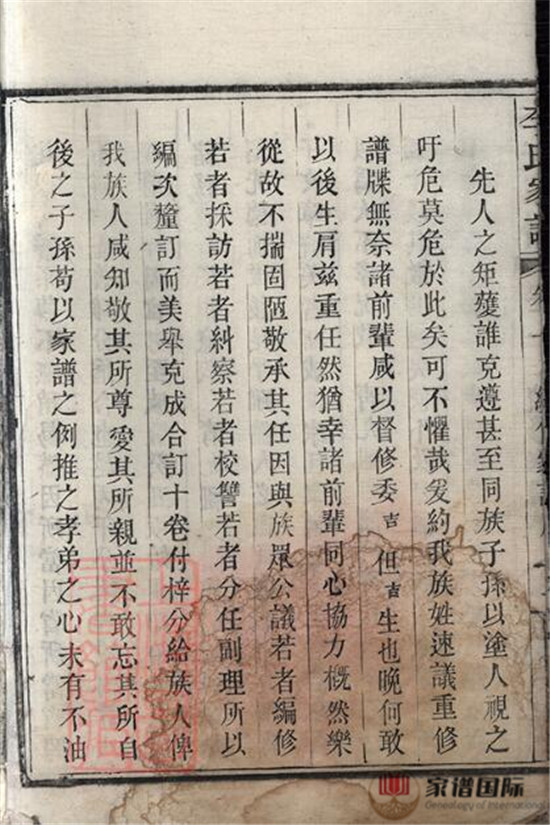 李氏家譜
先人之矩蒦誰克遵甚至同族子孫以塗人視之
吁危莫危於此矣可不懼哉爰約我族姓速議重修
譜牒無奈諸前輩咸以督修委吉但吉生也晚何敢
以後生肩茲重任然猶幸諸前輩同心協力概然樂
從故不揣固陋敬承其任因與族眾公議若者編修
若者採訪若者糾察若者校讐若者分任副理所以
編次釐訂而美舉克成合訂十卷付梓分給族人俾
我族人咸知敬其所尊愛其所親並不敢忘其所自
後之子孫苟以家譜之例推之孝弟之心未有不油
家谱国际
Genealogy of International